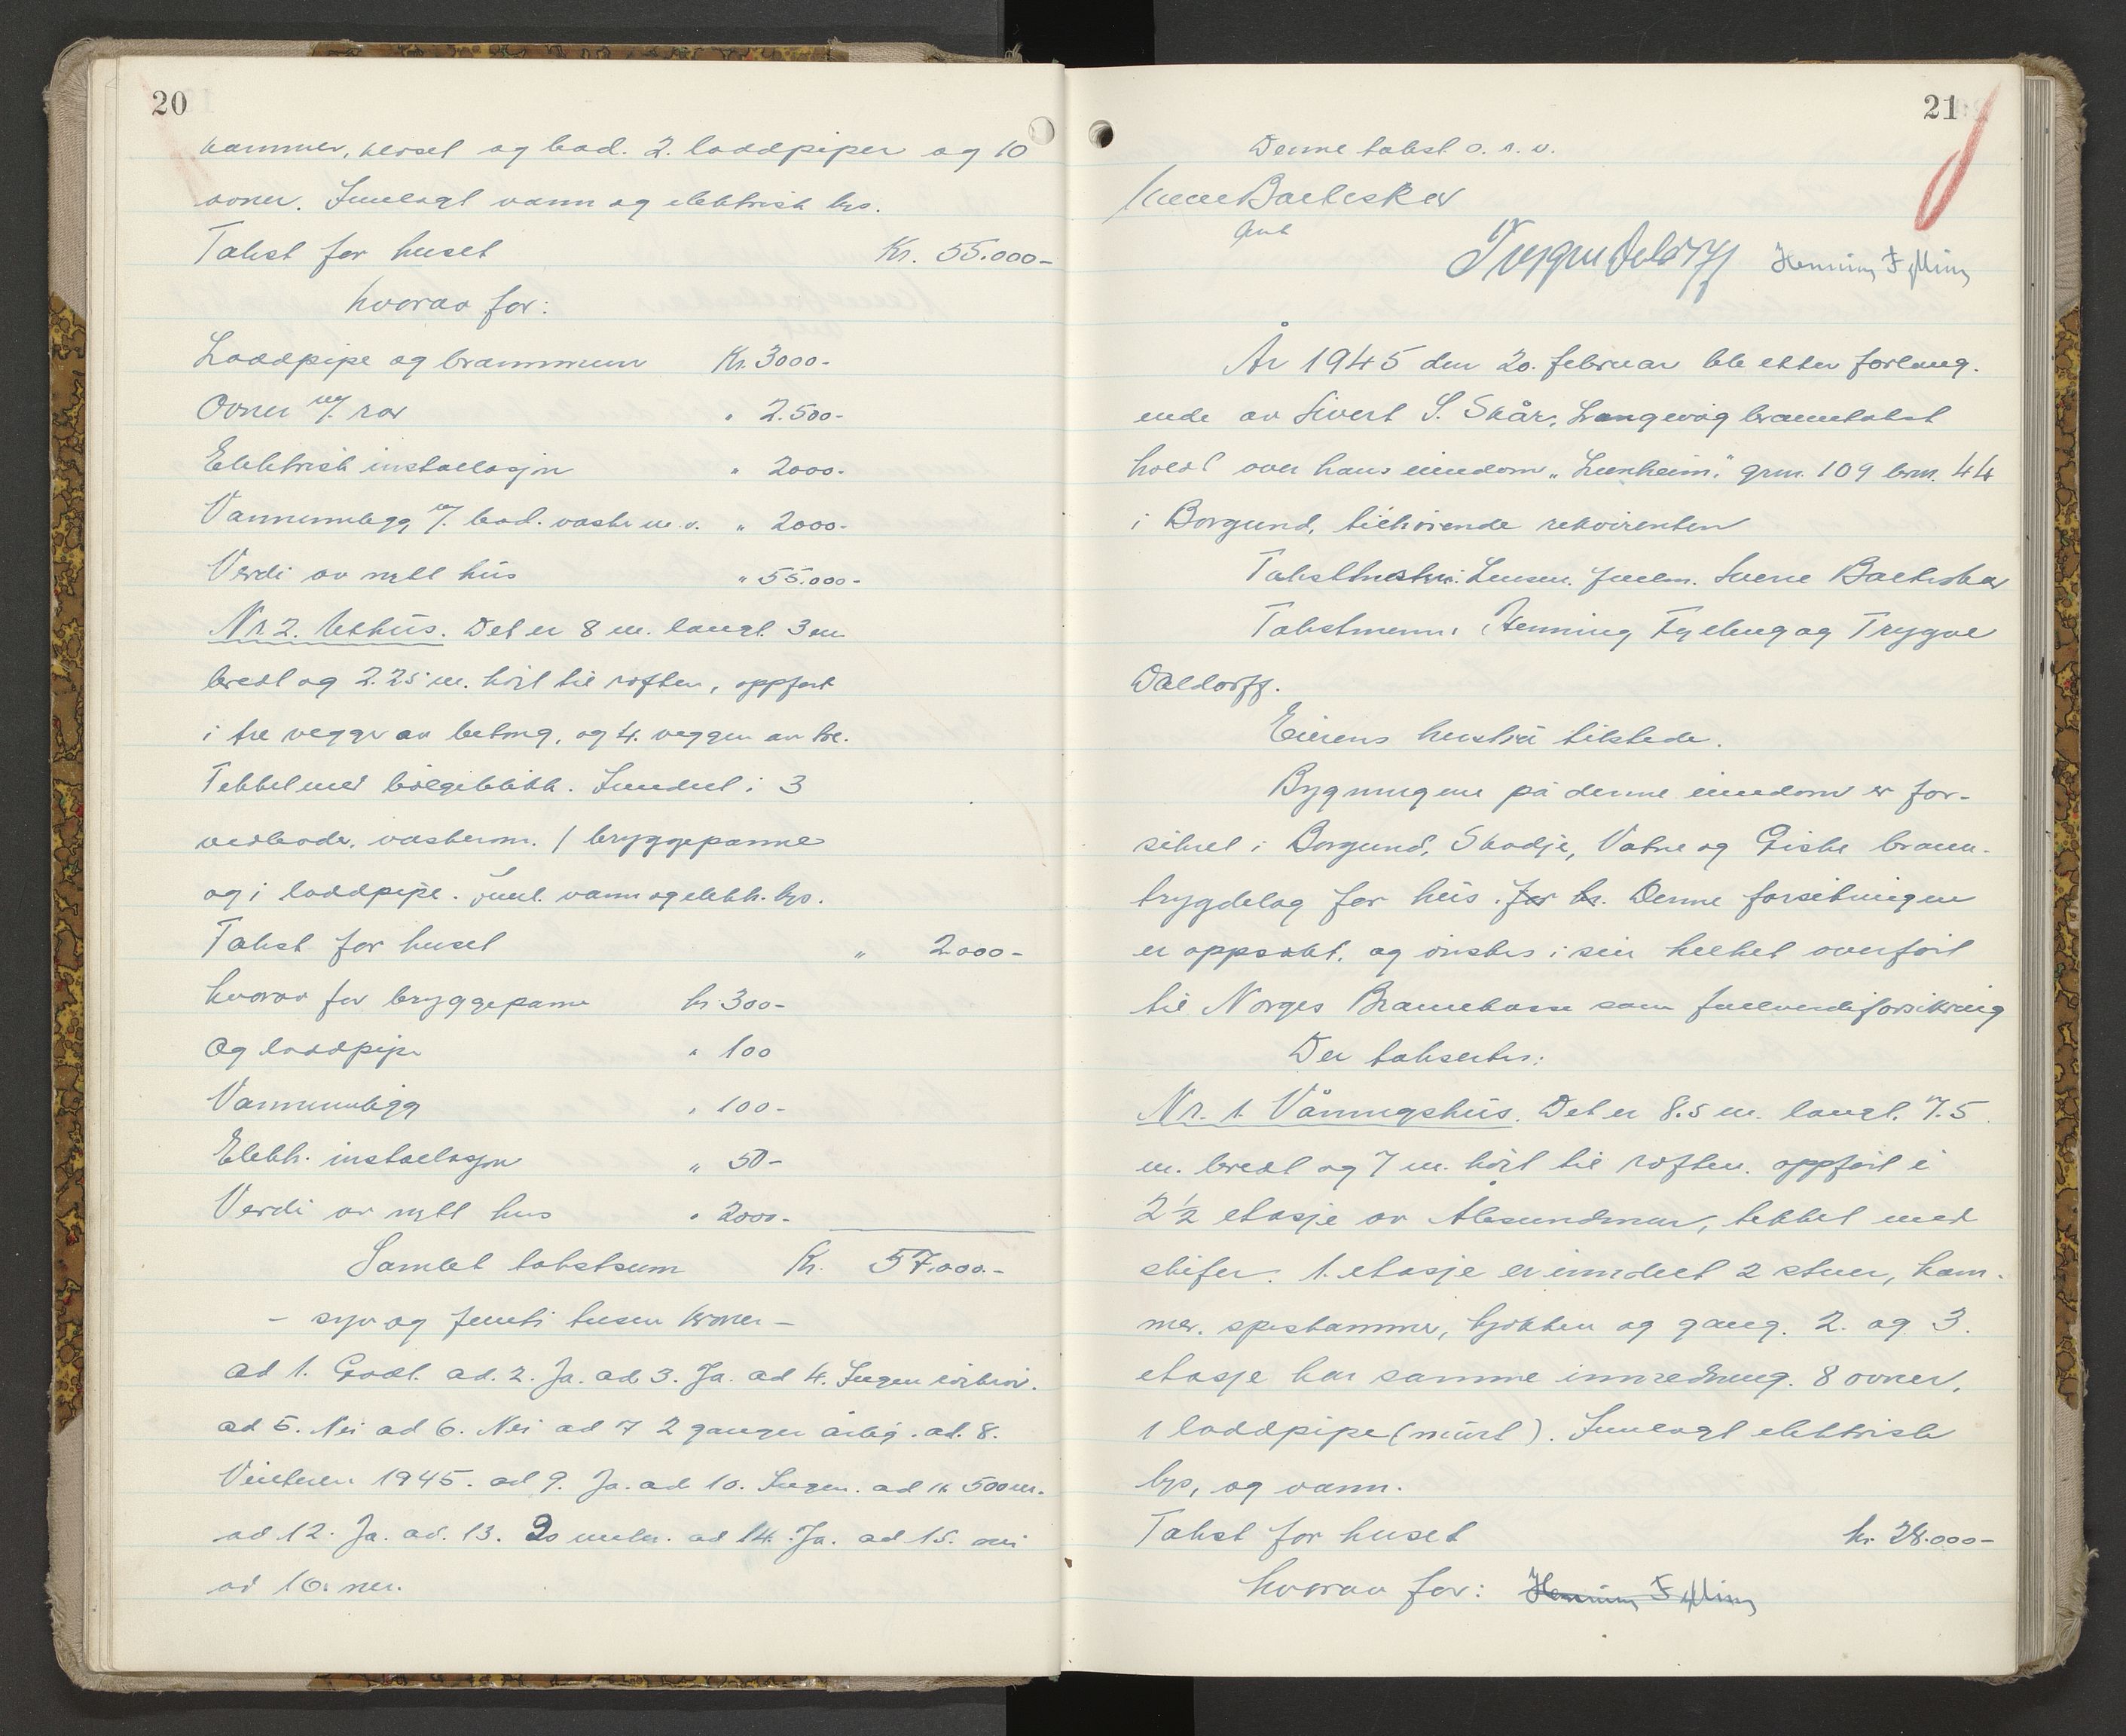 20
kammer, kloset og bad. 2. loddpiper og 10
ovner. Innlagt vann og elektrisk lys.
Takst for huset Kr. 55.000-
hvorav for:
Loddpipe og brannmur Kr. 3000-
Ovner m/. rør " 2.500-
Elektrisk installasjon " 2000-
Vanninnlegg m/. bad. vask m.v. " 2000-
Verdi av nytt hus " 55.000-
Nr 2. Uthus. Det er 8 m. langt. 3 m
bredt og 2.25 m. høit til røften, oppført
i tre vegger av betong, og 4. veggen av tre.
Tekket med bølgeblikk. Inndelt i 3
vedboder, vaskerom. 1 bryggepanne
og 1 loddpipe. Innl. vann og elektr. lys.
Takst for huset " 2000-
hvorav for bryggepanne kr. 300-
og loddpipe " 100
Vanninnlegg " 100-
Elektr. installasjon " 50-
Verdi av nytt hus " 2000-
Samlet takstsum Kr. 57.000.-
- syv og femti tusen kroner -
ad 1. Godt. ad. 2. Ja. ad 3. Ja. ad 4. Ingen
ad 5. Nei ad 6. Nei ad 7 2 ganger årlig. ad. 8.
Vinteren 1945. ad 9. Ja. ad 10. Ingen. ad 11. 500 m.
ad 12. Ja. ad. 13. 20 ad 14. Ja. ad 15. nei
ad 16. nei.
21
Denne takst o. s. v.
Bae­keskar
Trygve Waldorff Henning Fylling
År 1945 den 20. februar ble etter forlang-
ende av Sivert S. Skår, Langevåg branntakst
holdt over hans eiendom "Lunheim" grnr. 109 brnr. 44
i Borgund, tilhørende rekvirenten
Takstbestyr: Lensm. fullm. Sverre Bakeskar
Takstmenn: Henning Fylling og Trygve
Waldorff.
Eierens hustru tilstede.
Bygningene på denne eiendom er for-
sikret i Borgund, Skodje, Vatne og Giske brann-
trygdelag for hus. for kr. Denne forsikringen
er oppsakt, og ønskes i sin helhet overført
til Norges Brannkasse som fullverdiforsikring
Der takseres:
Nr. 1. Våningshus. Det er 8.5 m. langt. 7.5
m. bredt og 7 m. høit til røften. oppført i
2 ½ etasje av Ålesundmur, tekket med
skifer. 1. etasje er inndelt 2 stuer, kam-
mer, spiskammer, kjøkken og gang. 2. og 3.
etasje har samme innredning. 8 ovner,
1 loddpipe (murt). Innlagt elektrisk
lys, og vann.
Takst for huset kr. 28.000-
hvorav for: Henning Fylling